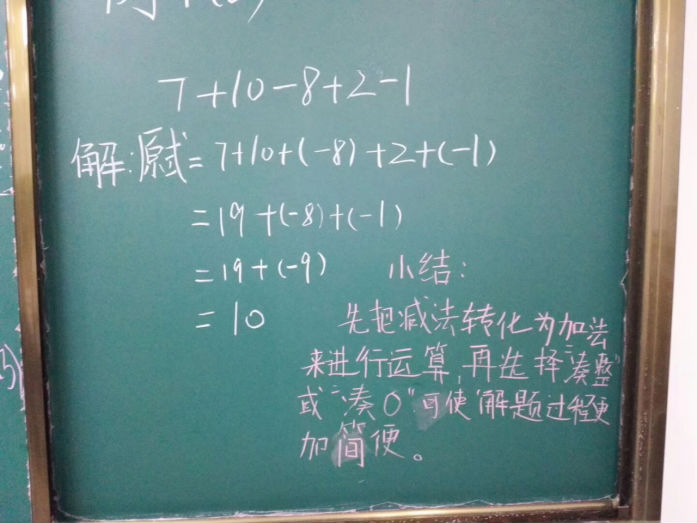 7+10-8+2-1
解:原式=7+10+(-8)+2+(-1)
=19+(-8)+(-1)
=19+(-9)
=10
小结:
先把减法转化为加法
来进行运算,再选择“凑整”
或“凑0”可使解题过程更
加简便。